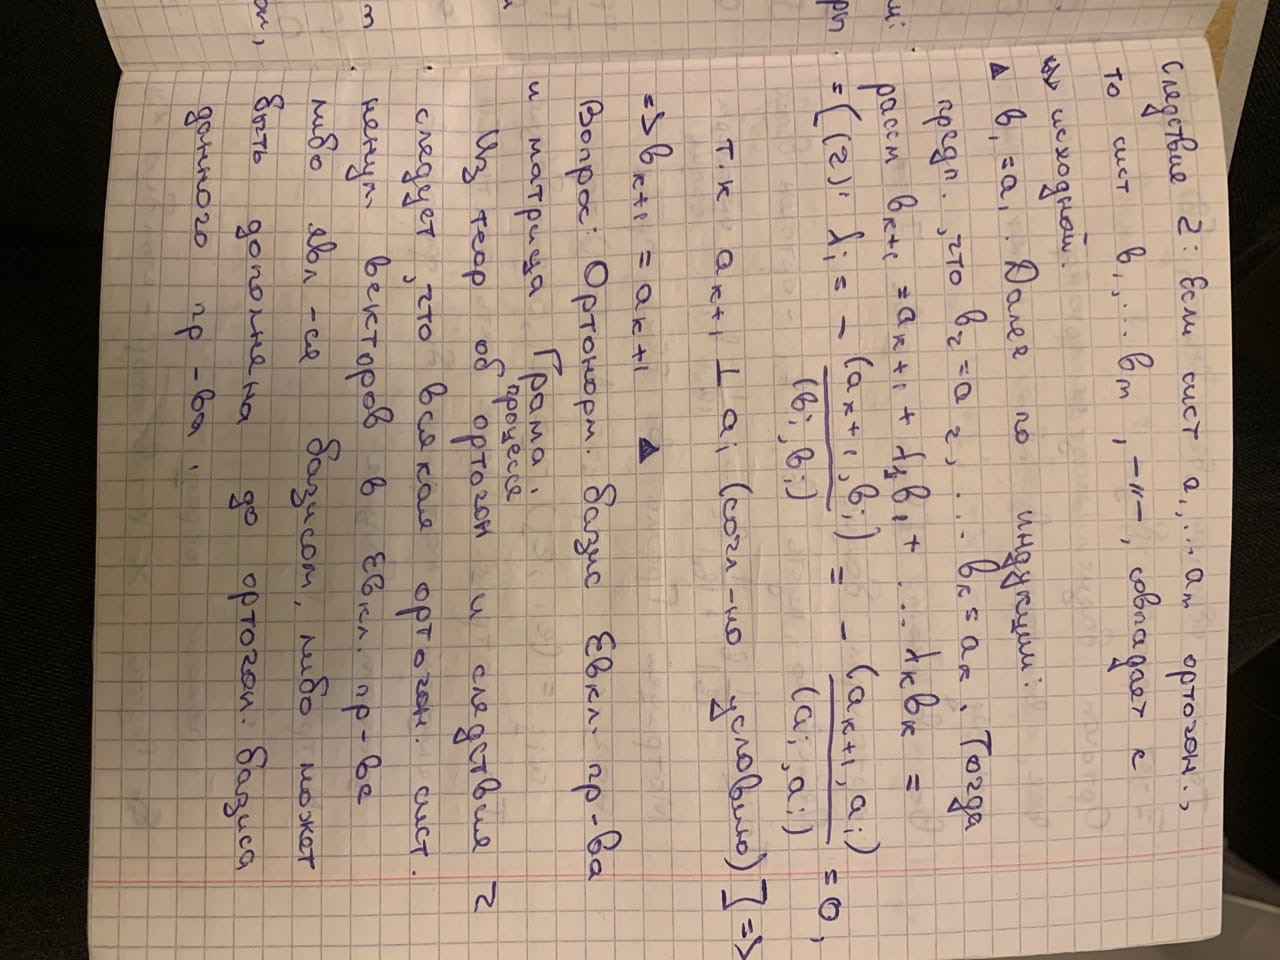 Следствие 2: Если сист a₁,... aₘ ортогон.,
то сист b₁,... bₘ, -"-, совпадает с
исходной.
▲ b₁ = a₁. Далее по индукции:
предп., что b₂ = a₂, ... bₖ = aₖ. Тогда
рассм bₖ₊₁ = aₖ₊₁ + λ₁b₁ + ... λₖbₖ =
= [(2): λᵢ = - (aₖ₊₁, bᵢ)/(bᵢ, bᵢ) = - (aₖ₊₁, aᵢ)/(aᵢ, aᵢ) = 0,
т.к aₖ₊₁ ⊥ aᵢ (согл-но условию)] =>
=> bₖ₊₁ = aₖ₊₁ ▲
Вопрос: Ортонорм. базис Евкл. пр-ва
и матрица Грама.
процесса
Из теор об ортогон и следствие 2
следует, что всякая ортогон. сист.
ненул. векторов в Евкл. пр-ве
либо явл-ся базисом, либо может
быть дополнена до ортогон. базиса
данного пр-ва.